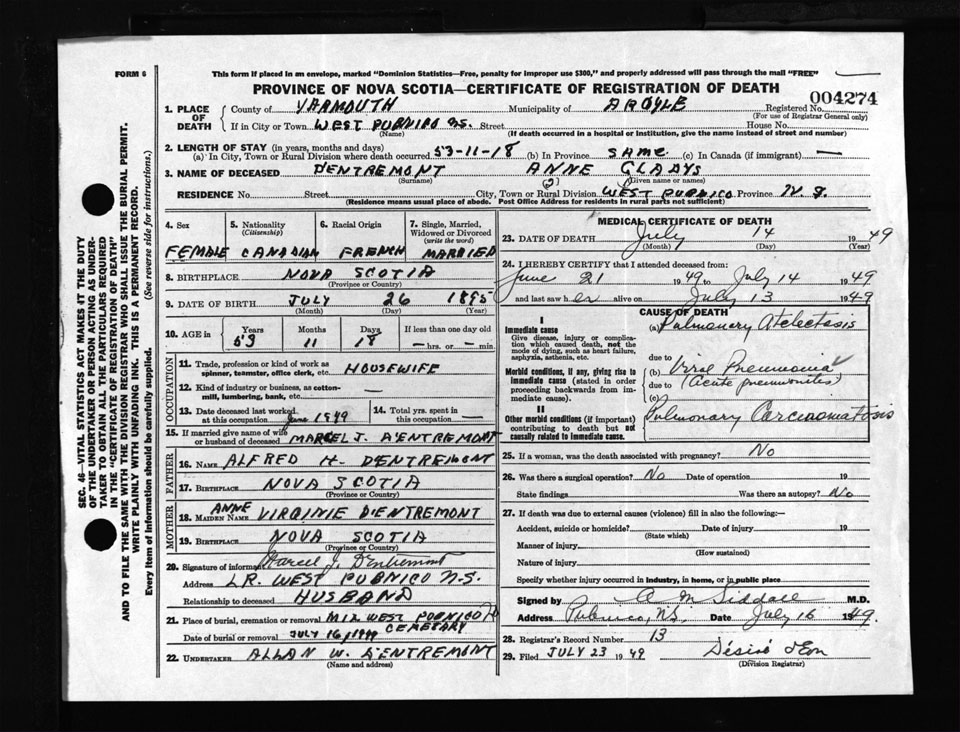 FORM 6
This form if placed in an envelope, marked "Dominion Statistics—Free, penalty for improper use $300," and properly addressed will pass through the mail "FREE"
PROVINCE OF NOVA SCOTIA—CERTIFICATE OF REGISTRATION OF DEATH
004274
1. PLACE OF DEATH
County of YARMOUTH Municipality of ARGYLE Registered No.
(For use of Registrar General only)
If in City or Town WEST PUBNICO N.S. Street House No.
(Name) (If death occurred in a hospital or institution, give the name instead of street and number)
2. LENGTH OF STAY (in years, months and days)
(a) In City, Town or Rural Division where death occurred 53-11-18 (b) In Province SAME (c) In Canada (if immigrant) —
3. NAME OF DECEASED D'ENTREMONT ANNE GLADYS
(Surname) (Given name or names)
RESIDENCE No. Street City, Town or Rural Division WEST PUBNICO Province N.S.
(Residence means usual place of abode. Post Office Address for residents in rural parts not sufficient)
4. Sex 5. Nationality (Citizenship) 6. Racial Origin 7. Single, Married, Widowed or Divorced (write the word)
FEMALE CANADIAN FRENCH MARRIED
8. BIRTHPLACE NOVA SCOTIA
(Province or Country)
9. DATE OF BIRTH JULY 26 1895
(Month) (Day) (Year)
10. AGE in Years Months Days If less than one day old
53 11 18 — hrs. or — min.
OCCUPATION
11. Trade, profession or kind of work as spinner, teamster, office clerk, etc. HOUSEWIFE
12. Kind of industry or business, as cotton-mill, lumbering, bank, etc. —
13. Date deceased last worked at this occupation June 1949 14. Total yrs. spent in this occupation —
15. If married give name of wife or husband of deceased MARCEL J. D'ENTREMONT
FATHER
16. NAME ALFRED H. DENTREMONT
17. BIRTHPLACE NOVA SCOTIA
(Province or Country)
MOTHER
18. MAIDEN NAME ANNE VIRGINIE D'ENTREMONT
19. BIRTHPLACE NOVA SCOTIA
(Province or Country)
20. Signature of informant Marcel J. D'Entremont
Address LR. WEST PUBNICO N.S.
Relationship to deceased HUSBAND
21. Place of burial, cremation or removal WEST PUBNICO CEMETARY
Date of burial or removal JULY 16, 1949
22. UNDERTAKER ALLAN W. D'ENTREMONT
(Name and address)
MEDICAL CERTIFICATE OF DEATH
23. DATE OF DEATH July 14 1949
(Month) (Day) (Year)
24. I HEREBY CERTIFY that I attended deceased from:
June 21 1949 to July 14 1949
and last saw her alive on July 13 1949
CAUSE OF DEATH
I
Immediate cause
Give disease, injury or complication which caused death, not the mode of dying, such as heart failure, asphyxia, asthenia, etc.
(a) Pulmonary Atelectasis
due to
Morbid conditions, if any, giving rise to immediate cause (stated in order proceeding backwards from immediate cause).
(b) Viral Pneumonia
due to (Acute pneumonitis)
(c)
II
Other morbid conditions (if important) contributing to death but not causally related to immediate cause.
Pulmonary Carcinomatosis
25. If a woman, was the death associated with pregnancy? No
26. Was there a surgical operation? No Date of operation 19
State findings Was there an autopsy? No
27. If death was due to external causes (violence) fill in also the following:—
Accident, suicide or homicide? Date of injury 19
(State which)
Manner of injury
(How sustained)
Nature of injury
Specify whether injury occurred in industry, in home, or in public place
Signed by A M Siddall M.D.
Address Pubnico, N.S. Date July 16 1949.
28. Registrar's Record Number 13
29. Filed JULY 23 1949 Désiré d'Eon
(Division Registrar)
SEC. 46—VITAL STATISTICS ACT MAKES IT THE DUTY
OF THE UNDERTAKER OR PERSON ACTING AS UNDER-
TAKER TO OBTAIN ALL THE PARTICULARS REQUIRED
IN THE "CERTIFICATE OF REGISTRATION OF DEATH"
AND TO FILE THE SAME WITH THE DIVISION REGISTRAR WHO SHALL ISSUE THE BURIAL PERMIT.
WRITE PLAINLY WITH UNFADING INK. THIS IS A PERMANENT RECORD.
Every item of information should be carefully supplied. (See reverse side for instructions.)